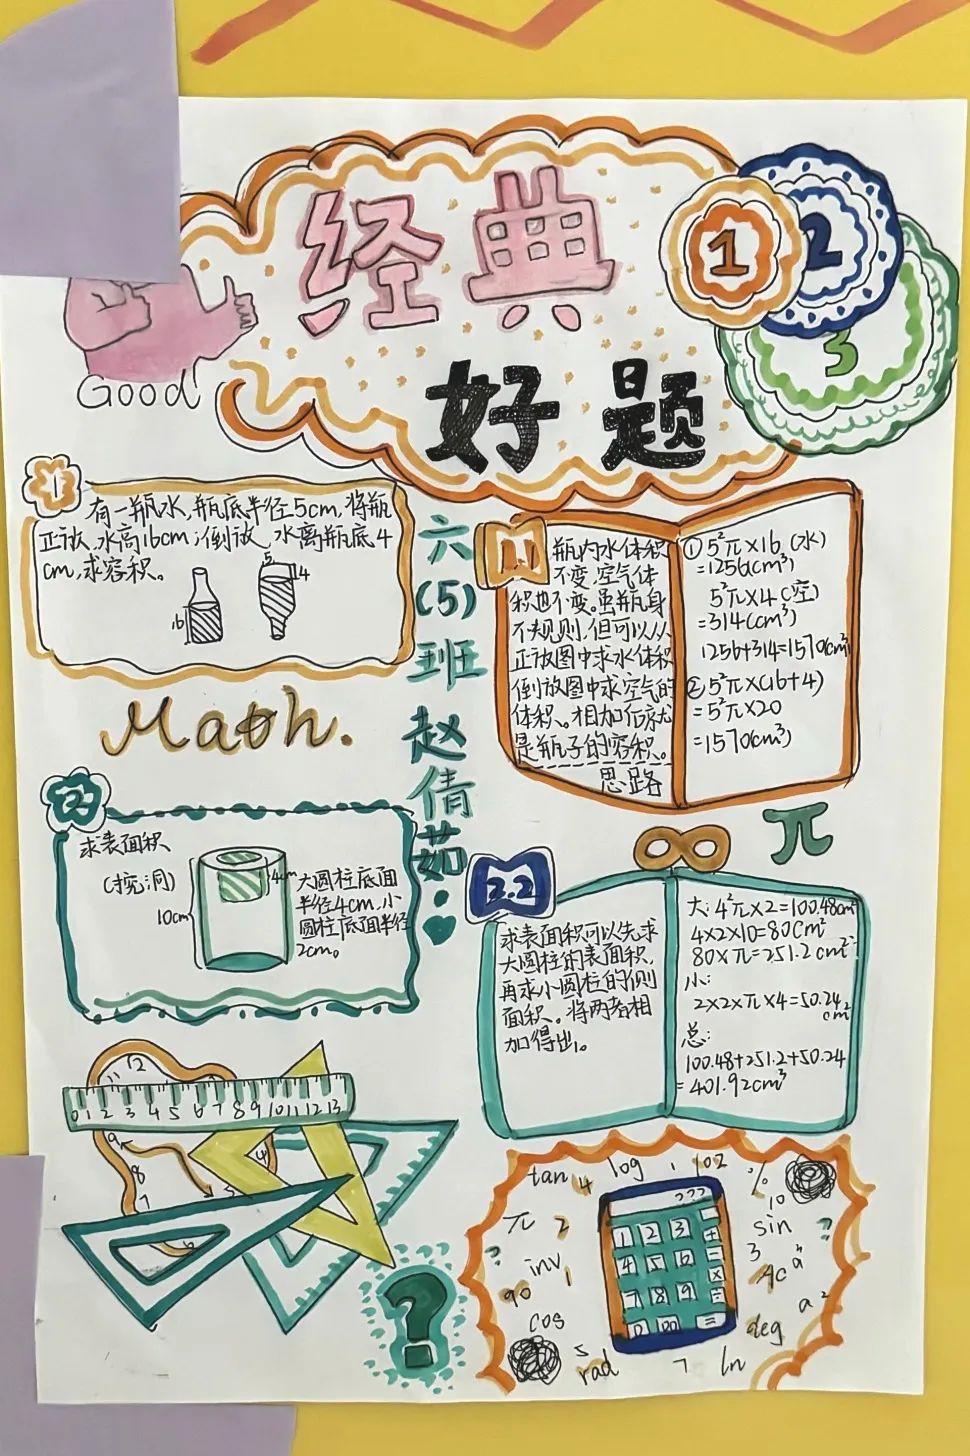 经典
好题
1
2
3
Good
1
有一瓶水,瓶底半径5cm,将瓶
正放,水高16cm;倒放,水离瓶底4
cm,求容积。
16
4
六(5)班 赵倩茹
Math.
1.1
瓶内水体积
不变,空气体
积也不变。虽瓶身
不规则,但可以从
正放图中求水体积
倒放图中求空气的
体积。相加后就
是瓶子的容积。
思路
①5²π×16(水)
=1256(cm³)
5²π×4(空)
=314(cm³)
1256+314=1570(cm³)
②5²π×(16+4)
=5²π×20
=1570(cm³)
2
求表面积
(挖洞)
10cm
4cm
大圆柱底面
半径4cm,小
圆柱底面半径
2cm。
π
2.2
求表面积可以先求
大圆柱的表面积,
再求小圆柱的侧
面积。将两者相
加得出。
大:4²π×2=100.48cm²
4×2×10=80cm²
80×π=251.2cm²
小:
2×2×π×4=50.24
cm²
总:
100.48+251.2+50.24
=401.92cm³
12
0 1 2 3 4 5 6 7 8 9 10 11 12 13
9
8
7
6
5
4
?
tan 4 log 1 102 %
10
π 2
sin
? inv 1
3
90
cos
a²
deg
5 rad 7 ln
???
1 2 3 +
4 5 6 -
×
7 8 9 ÷
0 00 =